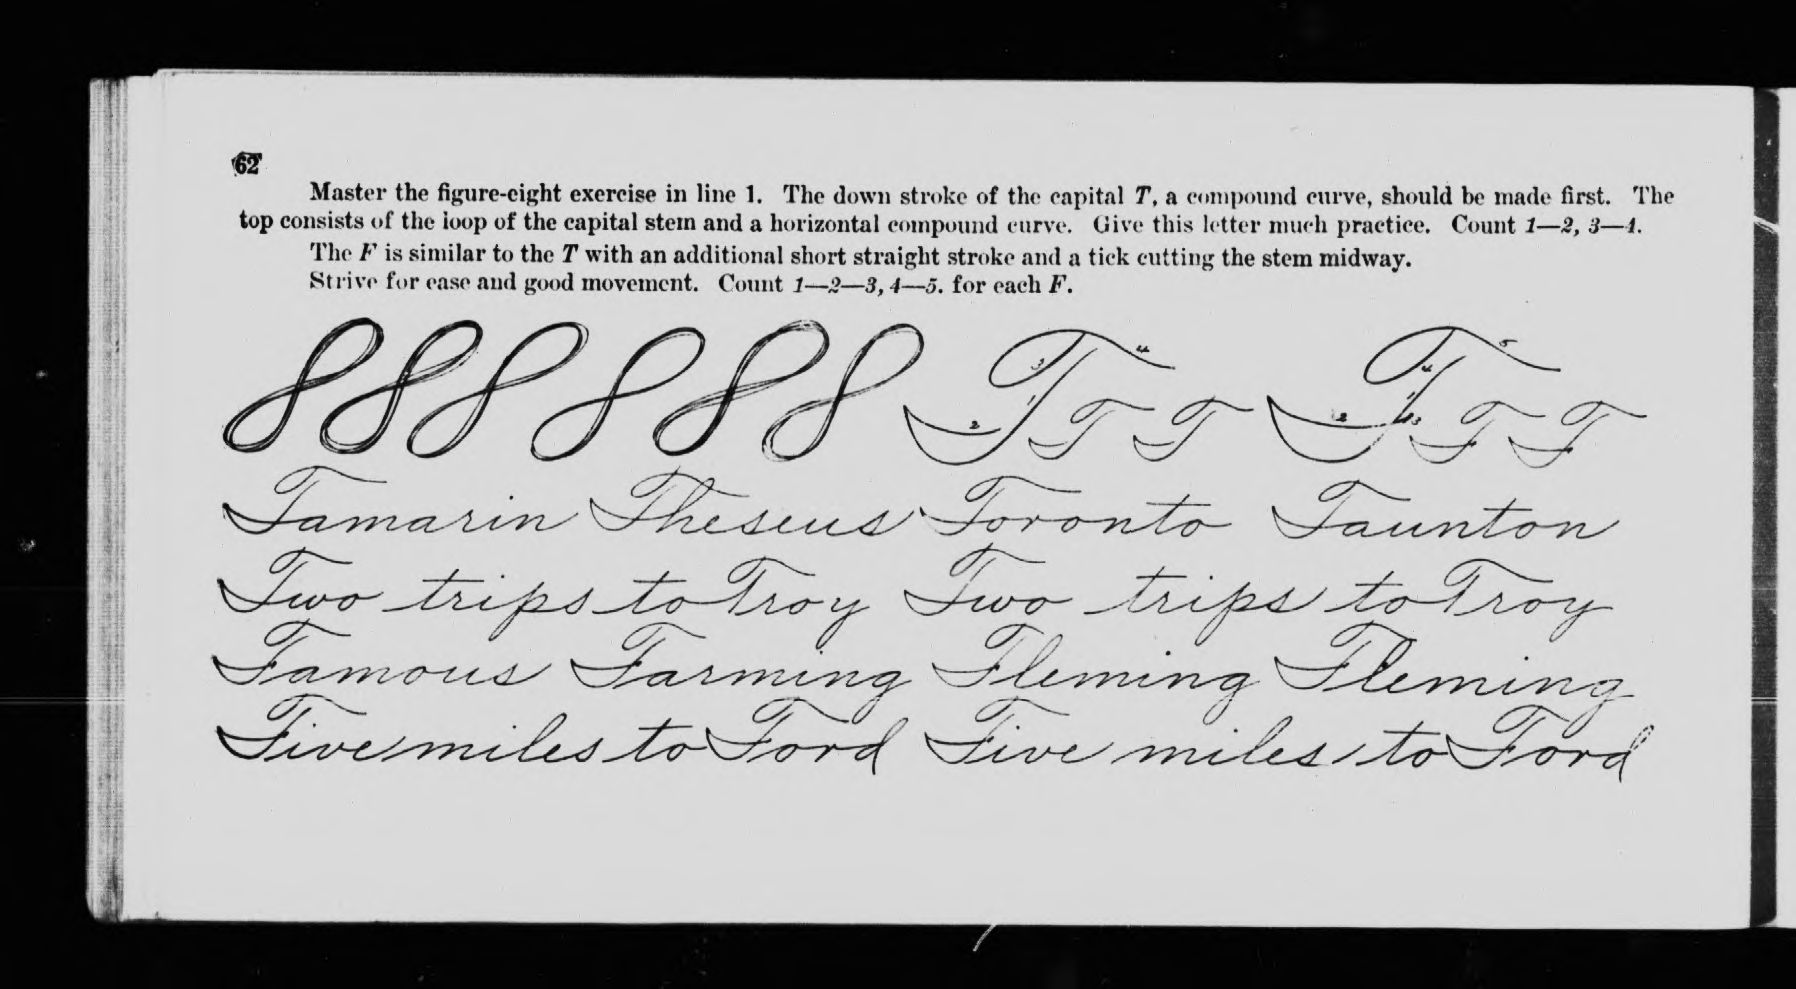 62
Master the figure-eight exercise in line 1. The down stroke of the capital T, a compound curve, should be made first. The
top consists of the loop of the capital stem and a horizontal compound curve. Give this letter much practice. Count 1—2, 3—4.
The F is similar to the T with an additional short straight stroke and a tick cutting the stem midway.
Strive for ease and good movement. Count 1—2—3, 4—5. for each F.
8 8 8 8 8 8 T T T F F F
Tamarin Theseus Toronto Taunton
Two trips to Troy Two trips to Troy
Famous Farming Fleming Fleming
Five miles to Ford Five miles to Ford